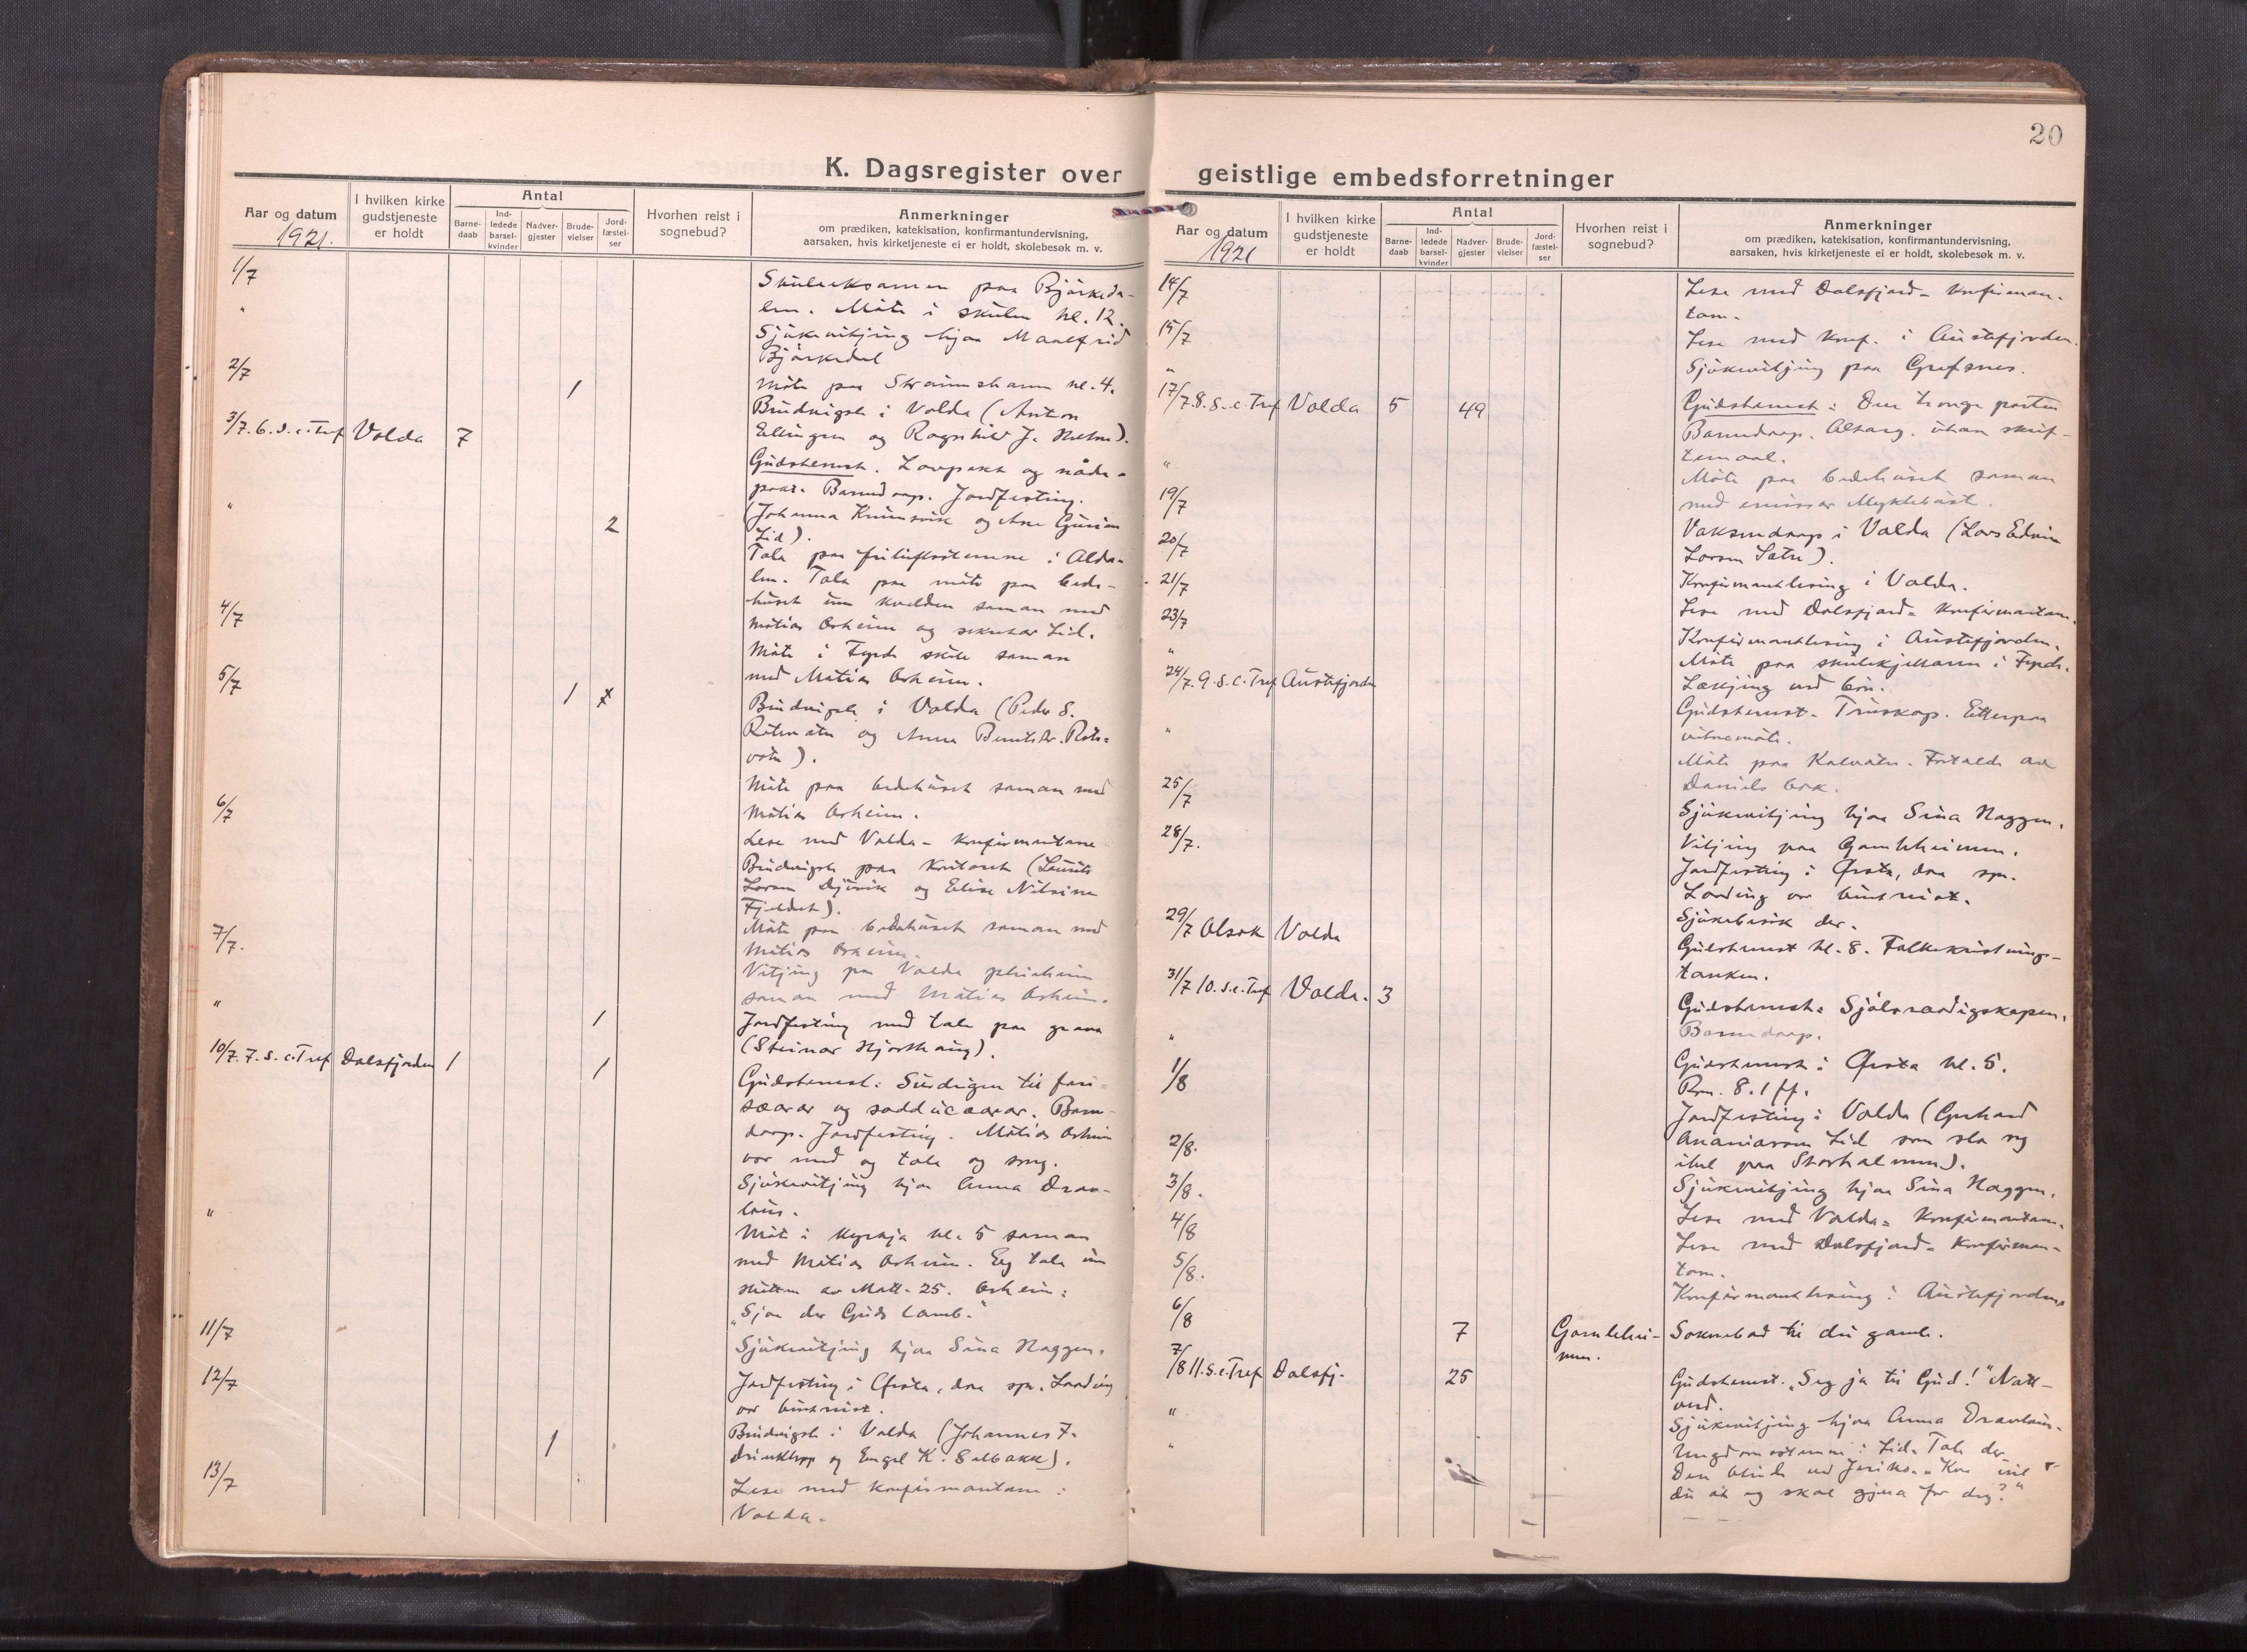 20
K. Dagsregister over
Aar og datum
1921.
I hvilken kirke
gudstjeneste
er holdt
Antal
Barne-
daab
Ind-
ledede
barsel-
kvinder
Nadver-
gjester
Brude-
vielser
Jord-
fæstel-
ser
Hvorhen reist i
sognebud?
Anmerkninger
om prædiken, katekisation, konfirmantundervisning,
aarsaken, hvis kirketjeneste ei er holdt, skolebesøk m. v.
1/7 Skuleeksamen paa Bjørkeda-
" len. Møte i skulen kl. 12.
Sjukevitjing hjaa Maalfrid
Bjørkedal
2/7 1 Møte paa Straumshamn kl. 4.
Brudvigsle i Volda (Anton
3/7. 6. s. e. Tref Volda 7 Ellingsen og Ragnhild J.
Gudstenest. Lovpakt og nåde-
pakt. Barnedaap. Jordfesting.
" 2 (Johanna og Ane
Lid).
Tala paa friluftsstemne i Alda-
len. Tala paa møte paa bede-
huset um kvelden saman med
4/7 Matias Orheim og sekretær Lid.
Møte i Fyrde skule saman
med Matias Orheim.
5/7 1 Brudvigsle i Volda (Peder S.
Rotevatn og Anna Rote-
vatn).
Møte paa bedehuset saman med
6/7 Matias Orheim.
Lese med Volda-konfirmantane
Brudvigsle paa kontoret (Laurits
Larsen og Elise Nilsine
Fjeldet).
Møte paa bedehuset saman med
7/7. Matias Orheim.
Vitjing paa Volda pleieheim
saman med Matias Orheim.
" 1 Jordfesting med tale paa grava
(Steinar Hjorthaug).
10/7. 7. s. e. Tref Dalsfjorden 1 1 Gudstenest: Surdeigen til fari-
sæarar og sadducæarar. Barne-
daap. Jordfesting. Matias Orheim
var med og tala og song.
Sjukevitjing hjaa Anna Drav-
laus.
" Møte i kyrkja kl. 5 saman
med Matias Orheim. Eg tala um
slutten av Matt. 25. Orheim:
"Sjaa der Guds Lamb."
11/7 Sjukevitjing hjaa Sina Haggen.
12/7 Jordfesting i Ørsta, daa spr. Laading
var burtreist.
1 Brudvigsle i Volda (Johannes F.
Driveklepp og Engel K. Selbakk).
13/7 Lese med konfirmantane i
Volda.
geistlige embedsforretninger
Aar og datum
1921
I hvilken kirke
gudstjeneste
er holdt
Antal
Barne-
daab
Ind-
ledede
barsel-
kvinder
Nadver-
gjester
Brude-
vielser
Jord-
fæstel-
ser
Hvorhen reist i
sognebud?
Anmerkninger
om prædiken, katekisation, konfirmantundervisning,
aarsaken, hvis kirketjeneste ei er holdt, skolebesøk m. v.
14/7 Lese med Dalsfjord-konfirman-
tane.
15/7 Lese med konf. i Austefjorden.
" Sjukevitjing paa Grefsnes.
17/7. 8. s. e. Tref Volda 5 49 Gudstenest: Den tronge porten
Barnedaap. Altarg. utan skrif-
temaal.
" Møte paa bedehuset saman
med emissær Myklebust.
19/7 Vaksendaap i Volda (Lars Edvin
Larsen Sætre).
20/7 Konfirmantlesing i Volda.
21/7 Lese med Dalsfjord-konfirmantane.
23/7 Konfirmantlesing i Austefjorden.
" Møte paa skulekjellaren i Fyrde.
Lækjing ved bøn.
24/7. 9. s. e. Tref Austefjorden Gudstenest. Truskap. Etterpaa
vitnemøte.
" Møte paa Kalvatn. Fortalde av
Daniels bok.
25/7 Sjukevitjing hjaa Sina Haggen.
Vitjing paa Gamleheimen.
28/7. Jordfesting i Ørsta, daa spr.
Laading var burtreist.
Sjukebesøk der.
29/7 Olsok Volda Gudstenest kl. 8. Folkekristnings-
tanken.
31/7 10. s. e. Tref Volda. 3 Gudstenest: Sjølvraadigskapen.
Barnedaap.
" Gudstenest i Ørsta kl. 5.
Rom. 8. 1 ff.
1/8 Jordfesting i Volda (Gerhard
Ananiassen Lid som slo seg
ihel paa Storhalmen).
2/8. Sjukevitjing hjaa Sina Haggen.
3/8. Lese med Volda-konfirmantane.
4/8 Lese med Dalsfjord-konfirman-
tane.
5/8. Konfirmantlesing i Austefjorden.
6/8 7 Gamlehei-
men. Soknebod til dei gamle.
7/8 11. s. e. Tref Dalsfj. 25 Gudstenest. "Seg ja til Gud!" Natt-
verd.
" Sjukevitjing hjaa Anna Dravlaus.
" Ungdomsstemne i Lid. Tala der
Den blinde ved Jeriko. "Kva vil
du at eg skal gjera for deg?"